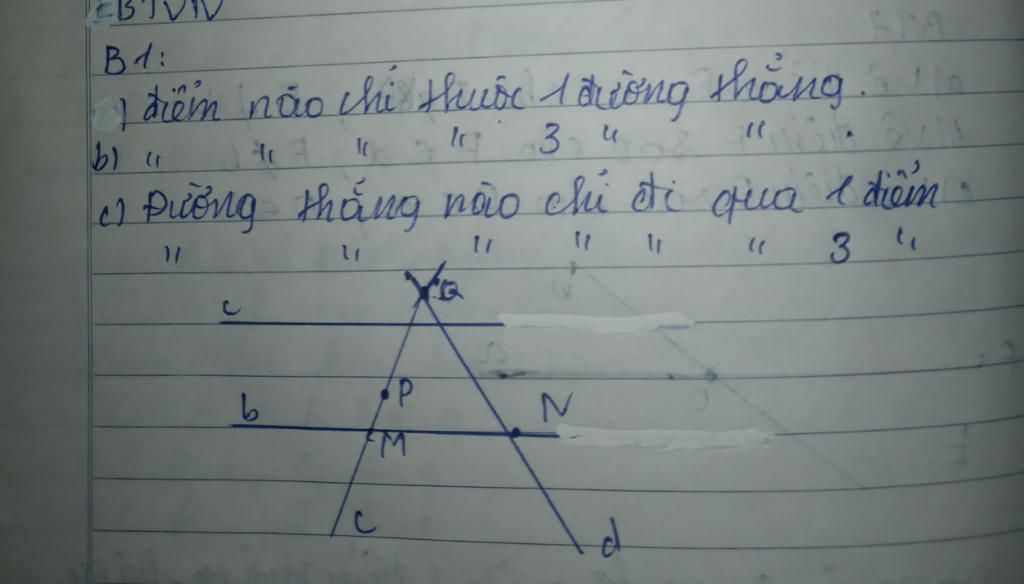 BTVN
B1:
a) điểm nào chỉ thuộc 1 đường thẳng.
b) " " " " 3 " " .
c) Đường thẳng nào chỉ đi qua 1 điểm
" " " " " " 3 "
Q
c
P
b
N
M
c
d